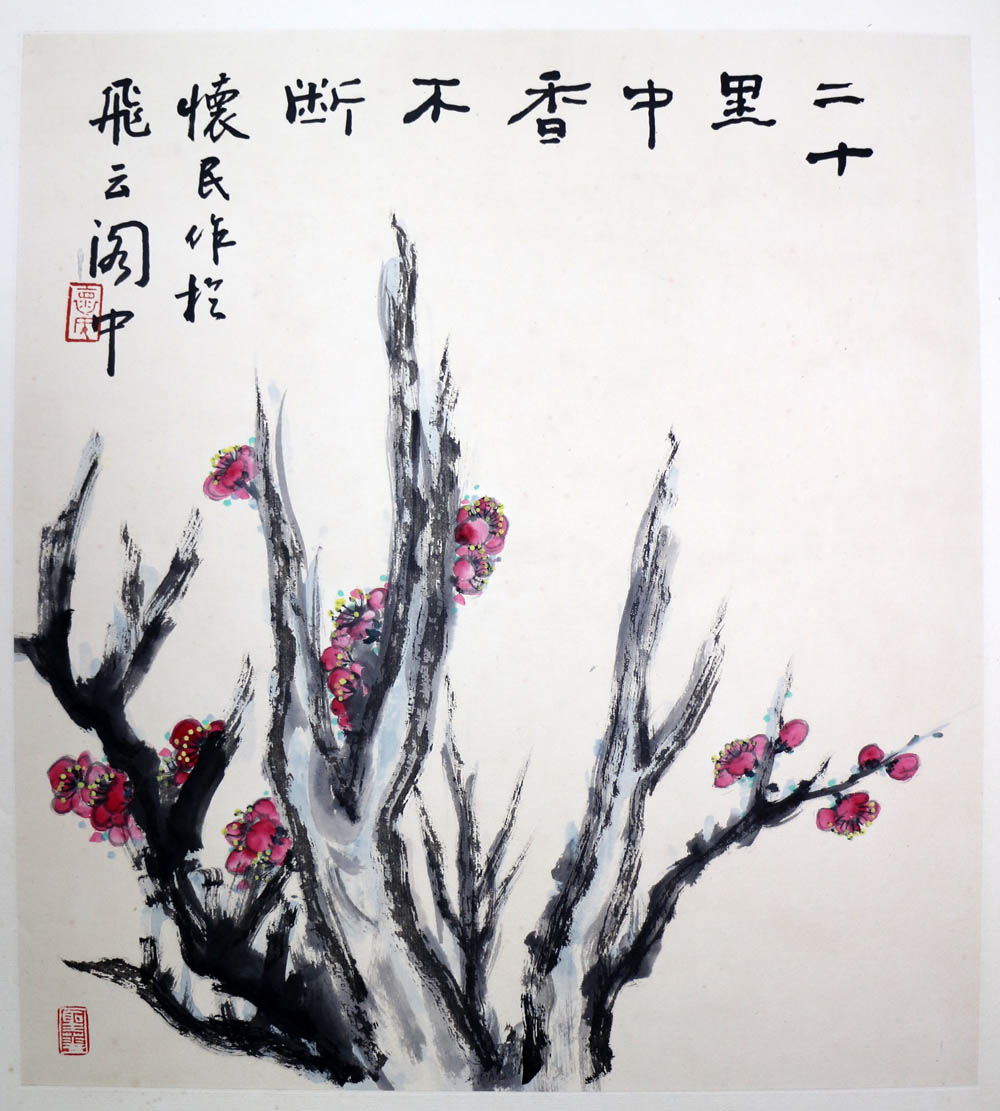 二十里中香不断
懷民作於
飛云阁中